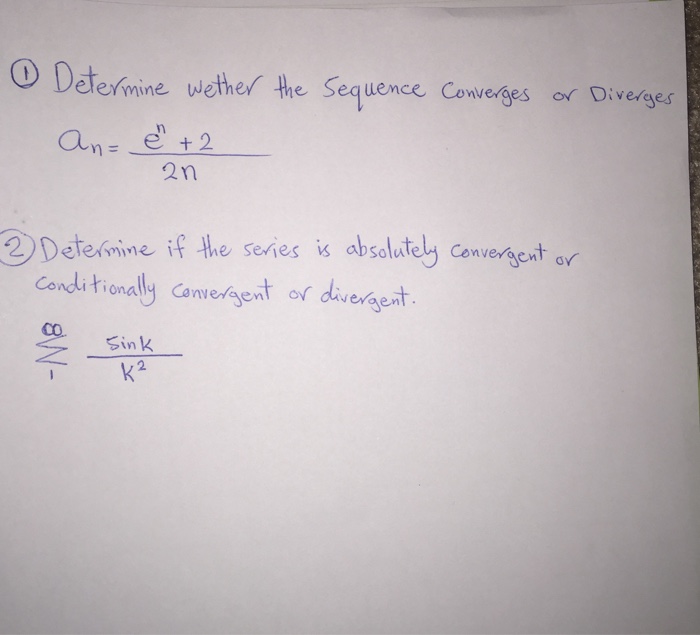 ① Determine wether the Sequence Converges or Diverges
an = e^n + 2 / 2n
② Determine if the series is absolutely Convergent or
Conditionally Convergent or divergent.
∞
Σ sin k / k²
1